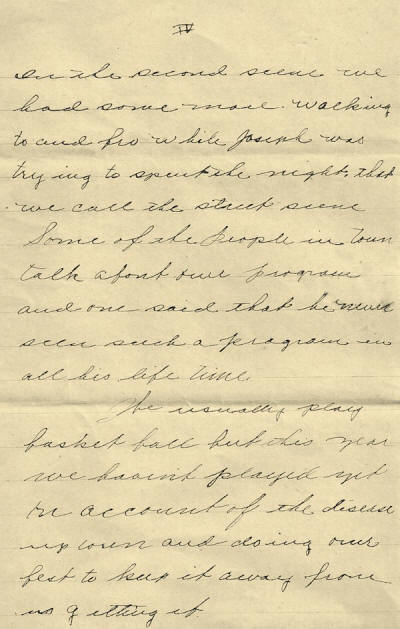 IV
In the second scene we
had some more walking
to and fro while Joseph was
trying to spent the night, that
we call the street scene
Some of the people in town
talk about our program
and one said that he never
seen such a program in
all his life time.
We usually play
basket ball but this year
we haven't played yet
on account of the disease
up town and doing our
best to keep it away from
us getting it.